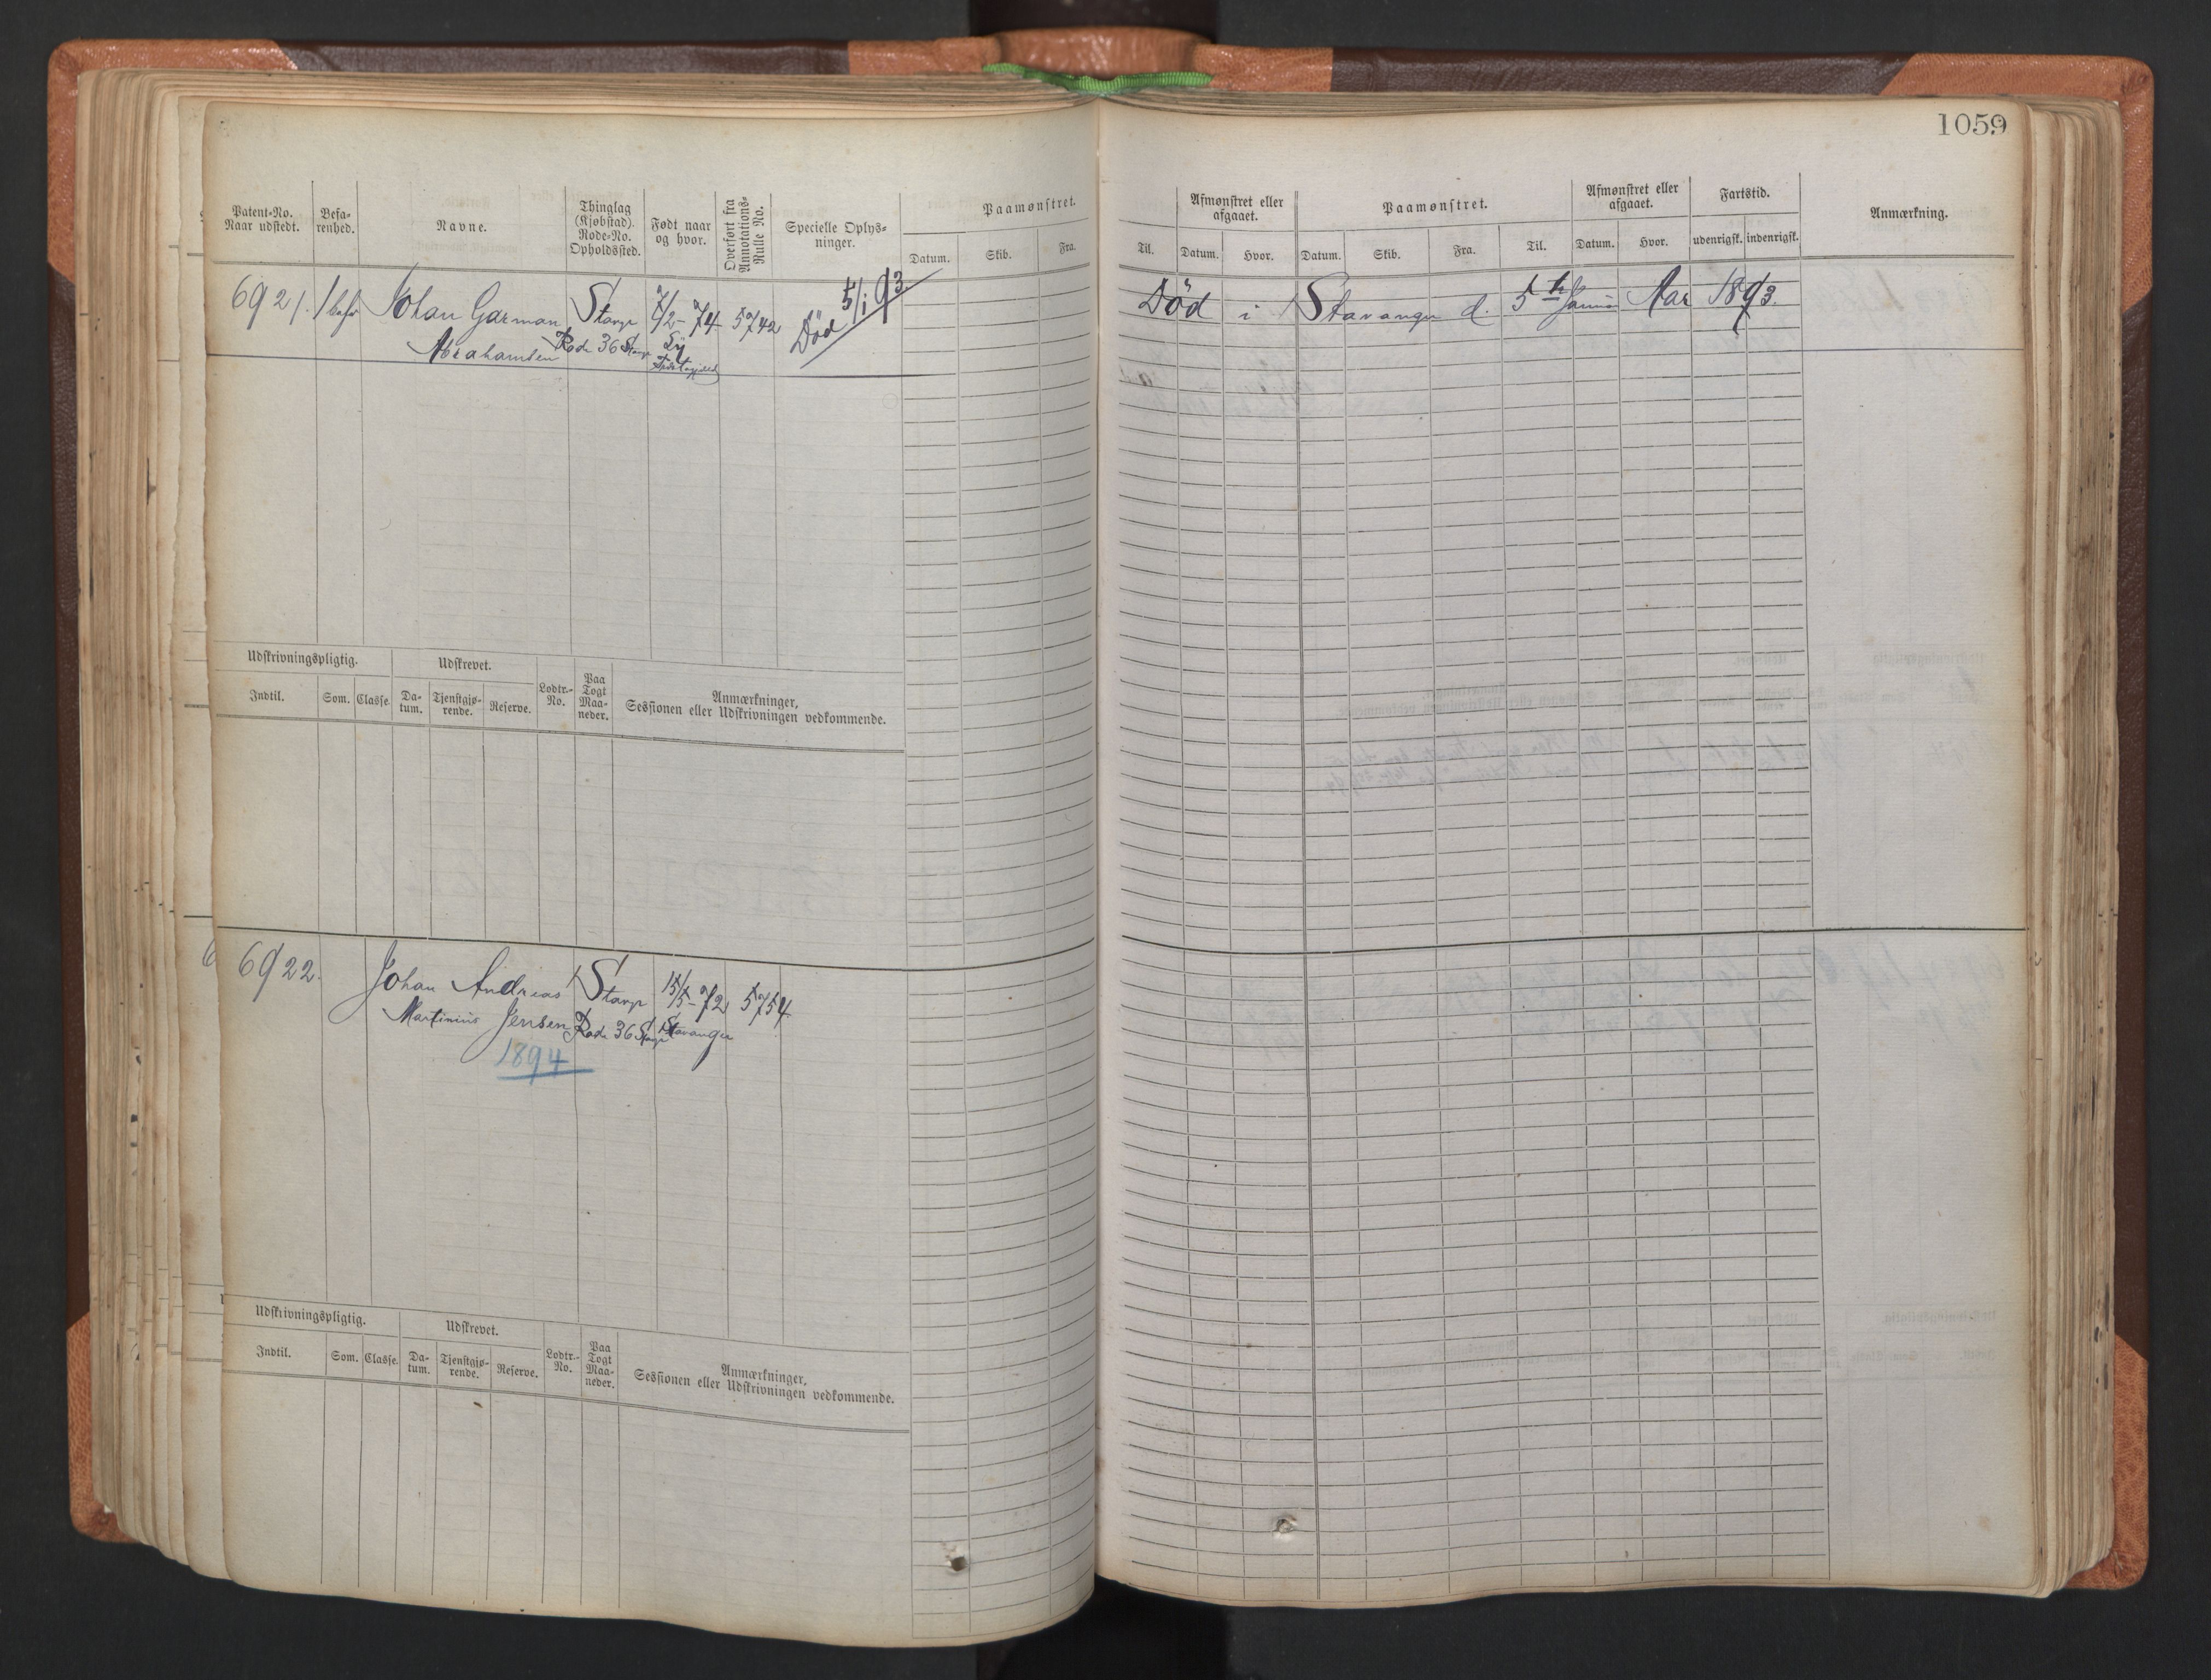 1059
Patent-No.
Naar udstedt.
Befa-
renhed.
Navne.
Thinglag
(Kjøbstad).
Rode-No.
Opholdssted.
Født naar
og hvor.
Overført fra
Annotations-
Rulle No.
Specielle Oplys-
ninger.
Paamønstret.
Datum.
Skib.
Fra.
Til.
Afmønstret eller
afgaaet.
Datum.
Hvor.
Paamønstret.
Datum.
Skib.
Fra.
Til.
Afmønstret eller
afgaaet.
Datum.
Hvor.
Fartstid.
udenrigsk.
indenrigsk.
Anmærkning.
6921. Johan Garman Stavgr 7/2-74 5742 Død 5/1 93.
Abrahamsen Rode 36 Stavgr
Død i Stavanger d. 5te Januar Aar 1893.
Udskrivningspligtig.
Udskrevet.
Indtil.
Som.
Classe.
Da-
tum.
Tjenstgjø-
rende.
Reserve.
Lodtr.-
No.
Paa
Togt
Maa-
neder.
Anmærkninger,
Sessionen eller Udskrivningen vedkommende.
6922. Johan Andreas Stavgr 15/5-72 5754
Martinius Jensen Rode 36 Stavgr Stavanger
1894
Udskrivningspligtig.
Udskrevet.
Indtil.
Som.
Classe.
Da-
tum.
Tjenstgjø-
rende.
Reserve.
Lodtr.-
No.
Paa
Togt
Maa-
neder.
Anmærkninger,
Sessionen eller Udskrivningen vedkommende.